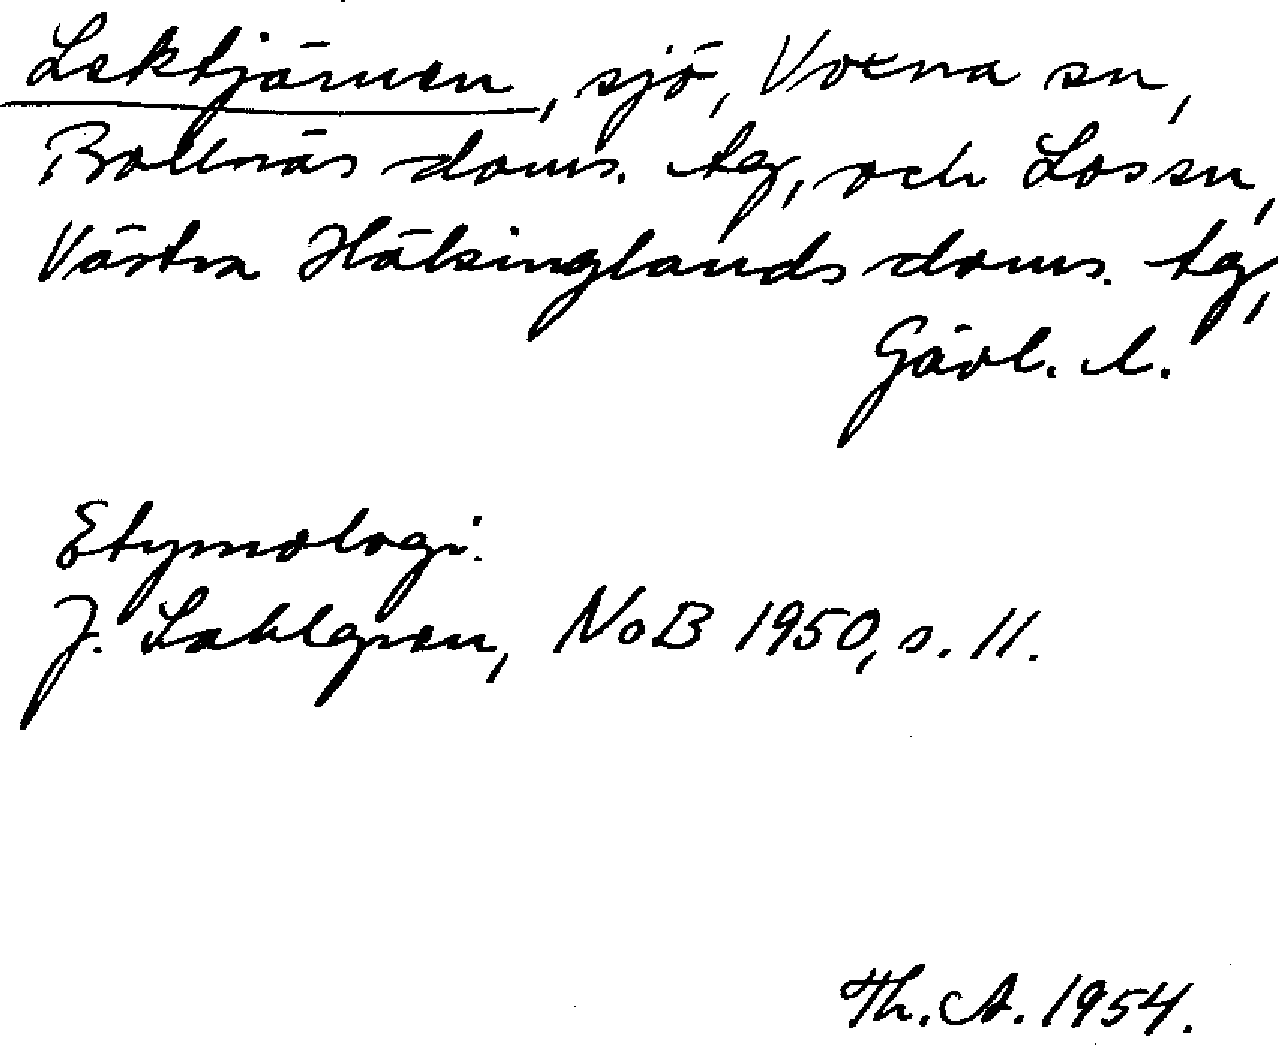 Lektjärnen, sjö, Voxna sn,
Bollnäs doms. tg, och Los sn,
Västra Hälsinglands doms. tg,
Gävl. l.
Etymologi.
J. Sahlgren, NoB 1950, s. 11.
Th. A. 1954.